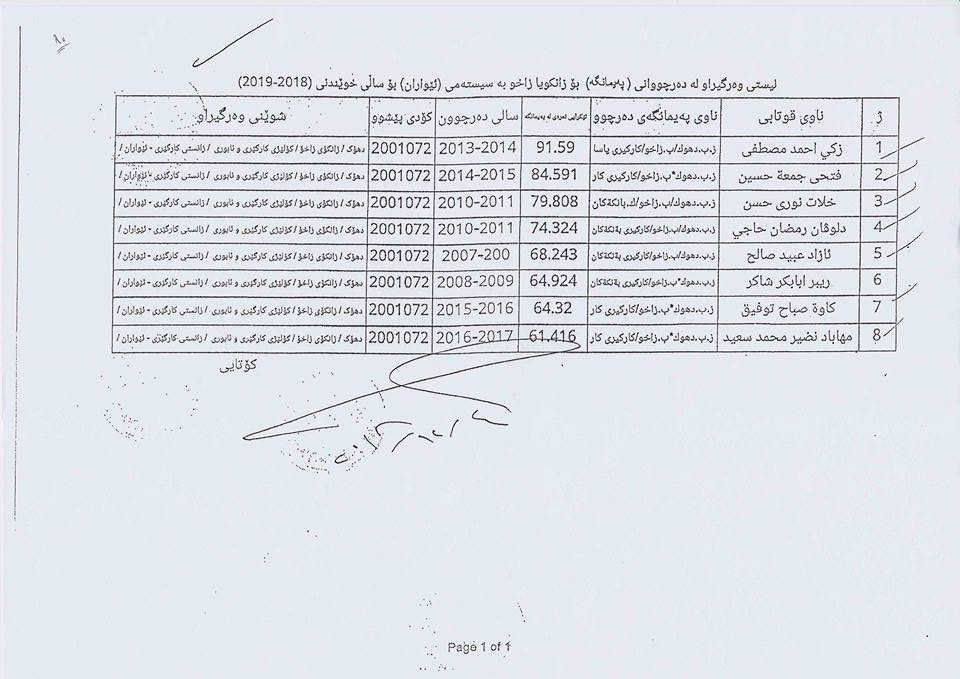 لیستی وەرگیراو لە دەرچووانی (پەیمانگە) بۆ زانکویا زاخو بە سیستەمی (ئێواران) بۆ ساڵی خوێندنی (2018-2019)
ژ ناوی قوتابی ناوی پەیمانگەی دەرچوو سالی دەرچوون کۆدی پێشوو شوێنی وەرگیراو
1 زكي احمد مصطفى ز.ب.دهوك/پ.زاخو/كارگیری یاسا 91.59 2013-2014 2001072 دهۆک / زانکۆی زاخۆ / کۆلێژی کارگێری و ئابوری / زانستی کارگێری - ئێواران /
2 فتحى جمعة حسين ز.ب.دهوك*پ.زاخو/كارگیری كار 84.591 2014-2015 2001072 دهۆک / زانکۆی زاخۆ / کۆلێژی کارگێری و ئابوری / زانستی کارگێری - ئێواران /
3 خلات نورى حسن ز.ب.دهوك/پ.زاخو/ك.بانكەكان 79.808 2010-2011 2001072 دهۆک / زانکۆی زاخۆ / کۆلێژی کارگێری و ئابوری / زانستی کارگێری - ئێواران /
4 دلوڤان رمضان حاجي ز.ب.دهوك/پ.زاخو/كارگیری بەنكەكان 74.324 2010-2011 2001072 دهۆک / زانکۆی زاخۆ / کۆلێژی کارگێری و ئابوری / زانستی کارگێری - ئێواران /
5 ئازاد عبيد صالح ز.ب.دهوك/پ.زاخو/كارگیری بەنكەكان 68.243 2007-200 2001072 دهۆک / زانکۆی زاخۆ / کۆلێژی کارگێری و ئابوری / زانستی کارگێری - ئێواران /
6 ريبر ابابكر شاكر ز.ب.دهوك*پ.زاخو/كارگیری بەنكەكان 64.924 2008-2009 2001072 دهۆک / زانکۆی زاخۆ / کۆلێژی کارگێری و ئابوری / زانستی کارگێری - ئێواران /
7 كاوة صباح توفيق ز.ب.دهوك*پ.زاخو/كارگیری كار 64.32 2015-2016 2001072 دهۆک / زانکۆی زاخۆ / کۆلێژی کارگێری و ئابوری / زانستی کارگێری - ئێواران /
8 مهاباد نضير محمد سعيد ز.ب.دهوك*پ.زاخو/كارگیری كار 61.416 2016-2017 2001072 دهۆک / زانکۆی زاخۆ / کۆلێژی کارگێری و ئابوری / زانستی کارگێری - ئێواران /
کۆتایی
Page 1 of 1